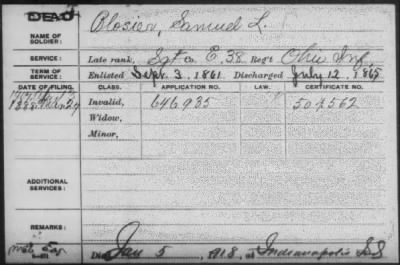 DEAD
NAME OF SOLDIER: Blosier, Samuel L.
SERVICE: Late rank, Sgt Co. E, 38 Reg't Ohio Inf.
TERM OF SERVICE: Enlisted Sept. 3, 1861 Discharged July 12, 1865
DATE OF FILING. CLASS. APPLICATION NO. LAW. CERTIFICATE NO.
1888 Invalid, 646935 504562
Widow,
Minor,
ADDITIONAL SERVICES:
REMARKS:
Died Jan 5, 1918, at Indianapolis